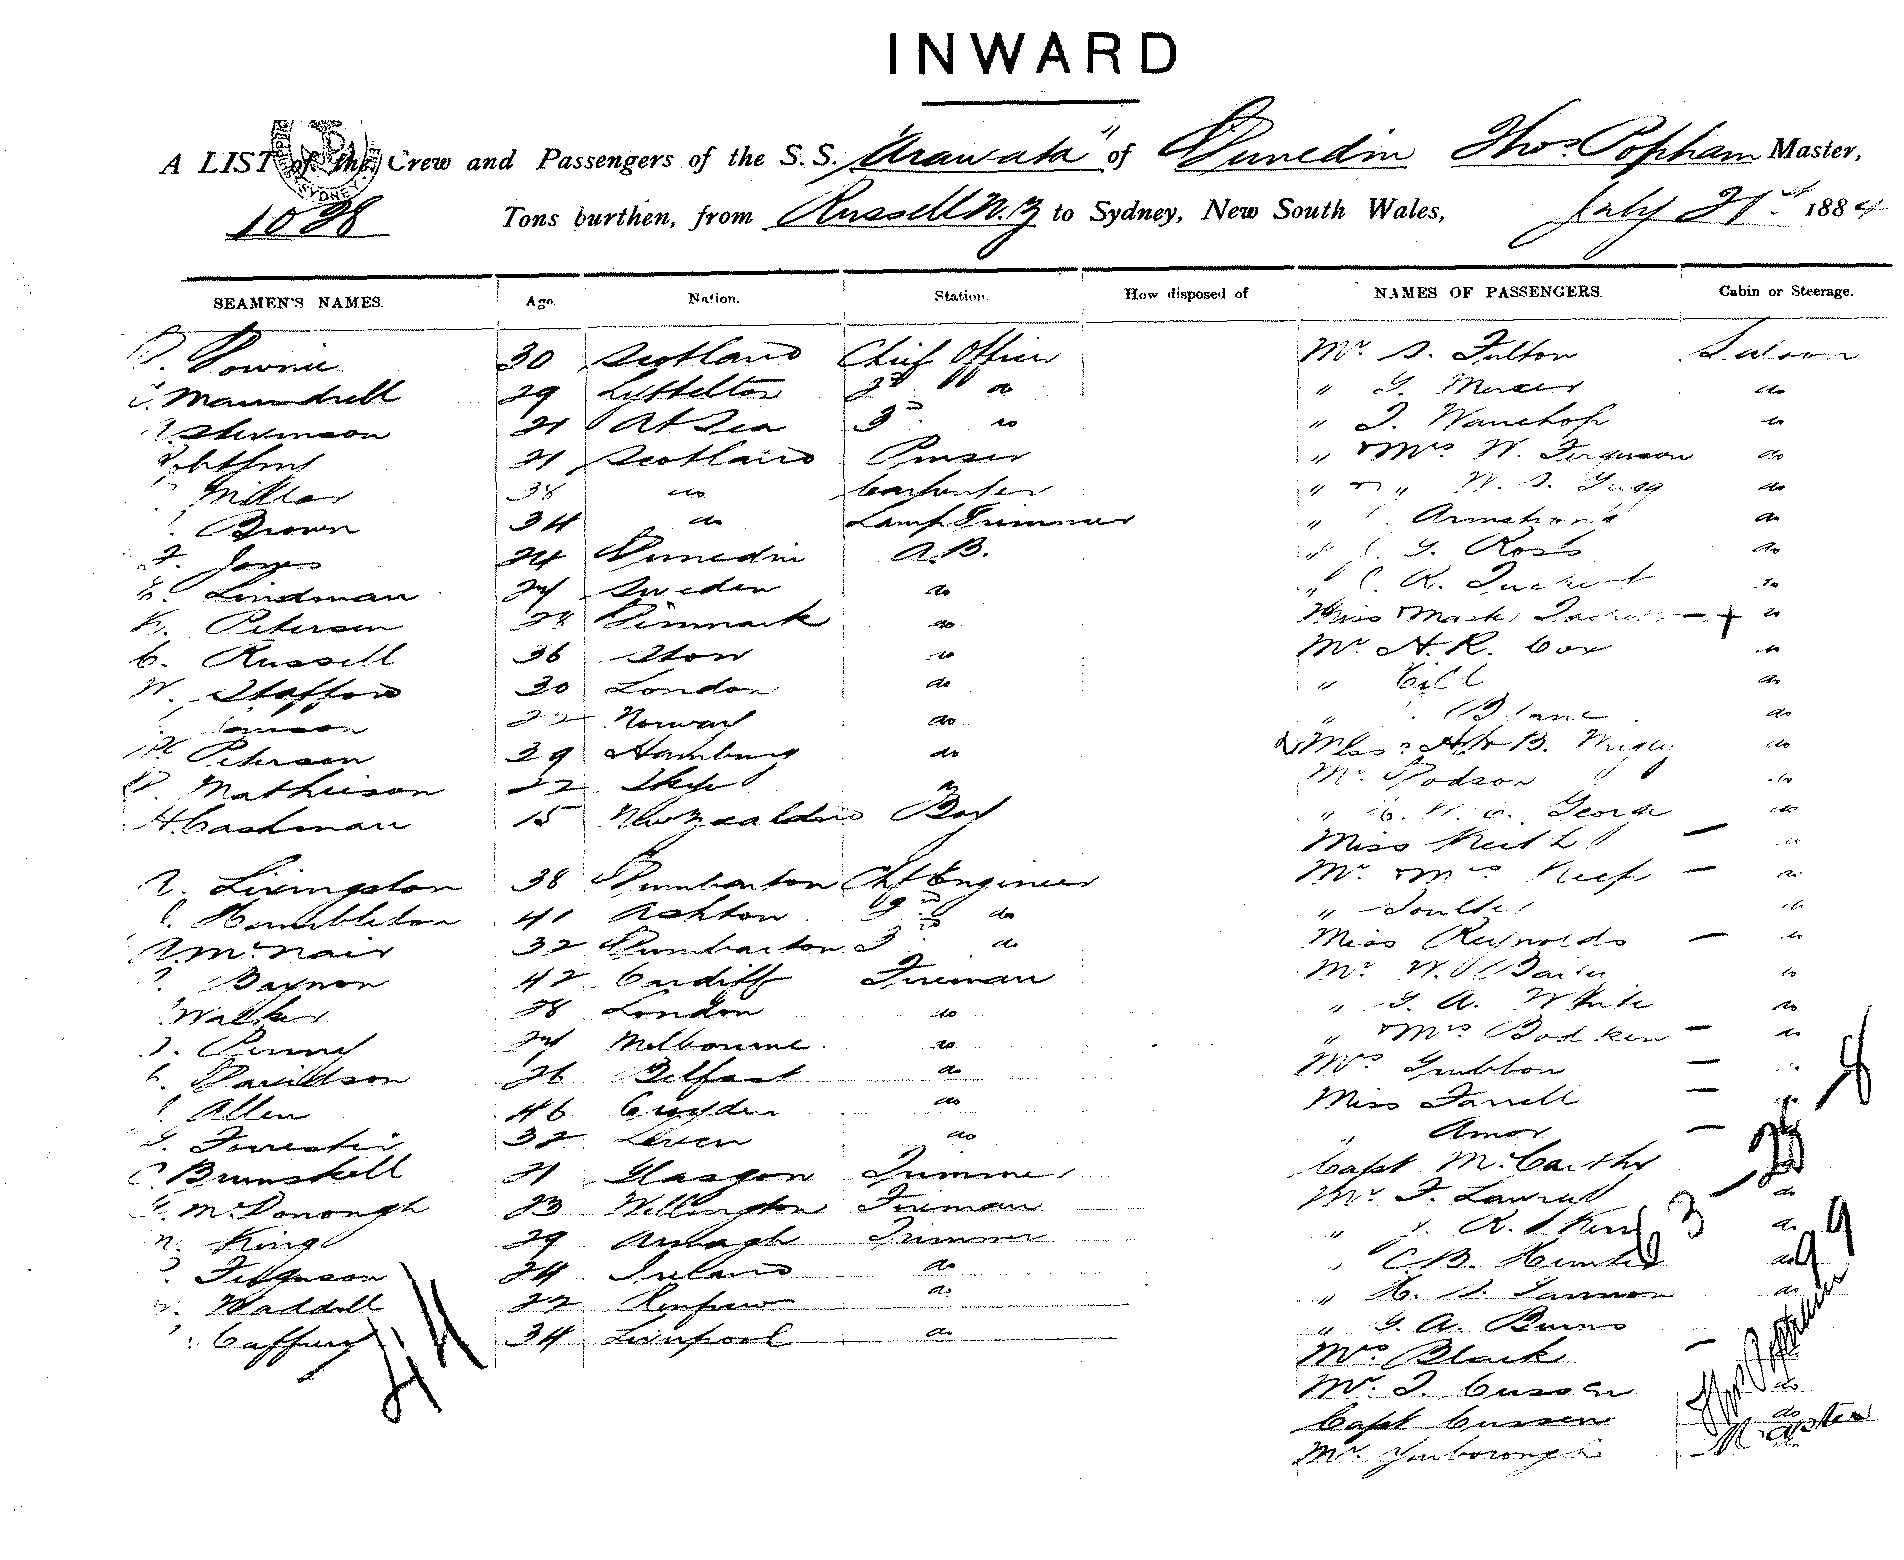 INWARD
A LIST of the Crew and Passengers of the S.S. "Arawata" of Dunedin Thos. Popham Master,
1098 Tons burthen, from Russell N.Z to Sydney, New South Wales, July 21st 1884
SEAMEN'S NAMES. Age. Nation. Station. How disposed of NAMES OF PASSENGERS. Cabin or Steerage.
Downie 30 Scotland Chief Officer Mr. S. Fulton Saloon
Maundrell 29 Lyttelton 2nd do " G. Mercer do
Stevenson 21 At Sea 3rd do " J. Wauchop do
21 Scotland Purser " & Mrs W. Ferguson do
Millar 38 do Carpenter " & " W. S. do
Brown 34 do Lamp Trimmer " Armstrong do
F. Jones 24 Dunedin A.B. " G. Ross do
Lindman 24 Sweden do " R. do
Petersen 28 Denmark do Miss & Mast do
C. Russell 36 Stow do Mr A. R. Cox do
W. Stafford 30 London do " Gill do
22 Norway do " do
Petersen 29 Hamburg do 2 Miss do
Mathieson 22 Skye do Mr. Dodson do
H. Cashman 15 New Zealand Boy " George do
Miss Keith do
Livingston 38 Dumbarton Chf Engineer Mr & Mrs Keep do
Humbleton 41 Ashton 2nd do " do
McNair 32 Dumbarton 3 do Miss Reynolds do
Baynon 42 Cardiff Fireman Mr W. do
Walker 28 London do " G. A. White do
Penny 24 Melbourne do " & Mrs Bodken do
Davidson 26 Belfast do Mrs Gribbon do
Allen 46 Croyden do Miss Farrell do
Forrester 32 Leven do " Amor
C Brunskell 21 Glasgow Trimmer Capt McCarthy
McDonough 23 Wellington Fireman Mr. F. do
King 29 Armagh Trimmer " J. R. Kerr do
Ferguson 24 Ireland do " C. B. Hunter do
Waddell 22 Renfrew do " H. S. do
Caffery 34 Liverpool do " G. A. Burns
44
Mrs Black
Mr. J. Cussen do
Capt Cussen do
Mr. Yarborough
8
25
63
99
Thos Popham
Master